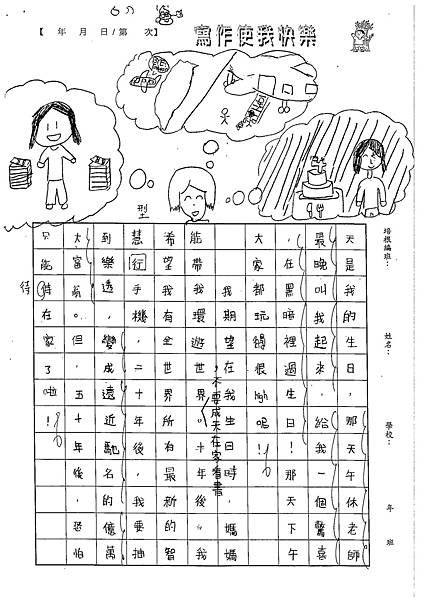 【 年 月 日/第 次】
寫作使我快樂
培根編班： 姓名： 學校： 年 班
天是我的生日，那天午休老師
最晚叫我起來，給我一個驚喜
，在黑暗裡過生日！那天下午
大家都玩得很high呢！！
我期望在我生日時，媽媽
能帶我環遊世界，不要成天在家看書。十年後，我
希望我有全世界所有最新的智
慧型手機，二十年後，我要抽
到樂透，變成遠近馳名的億萬
大富翁。但，五十年後，恐怕
只能待在家了啦！